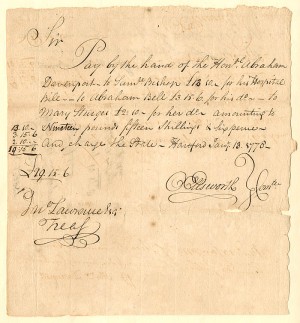 Sir
Pay by the hand of the Honle Abraham
Davenport to Saml Bishop £13.10 - for his Hospital
Bill - - to Abraham Bell 3.15.6 for his do - - to
Mary Sturges £2.10 - for her do amounting to
13.10 -
3.15.6
2.10 -
19.15.6
Nineteen pounds fifteen Shillings & sixpence
And charge the State - Hartford Jany 13. 1778 -
£19.15.6
OEllsworth } Comte
Jno Lawrence Esqr
Treasr